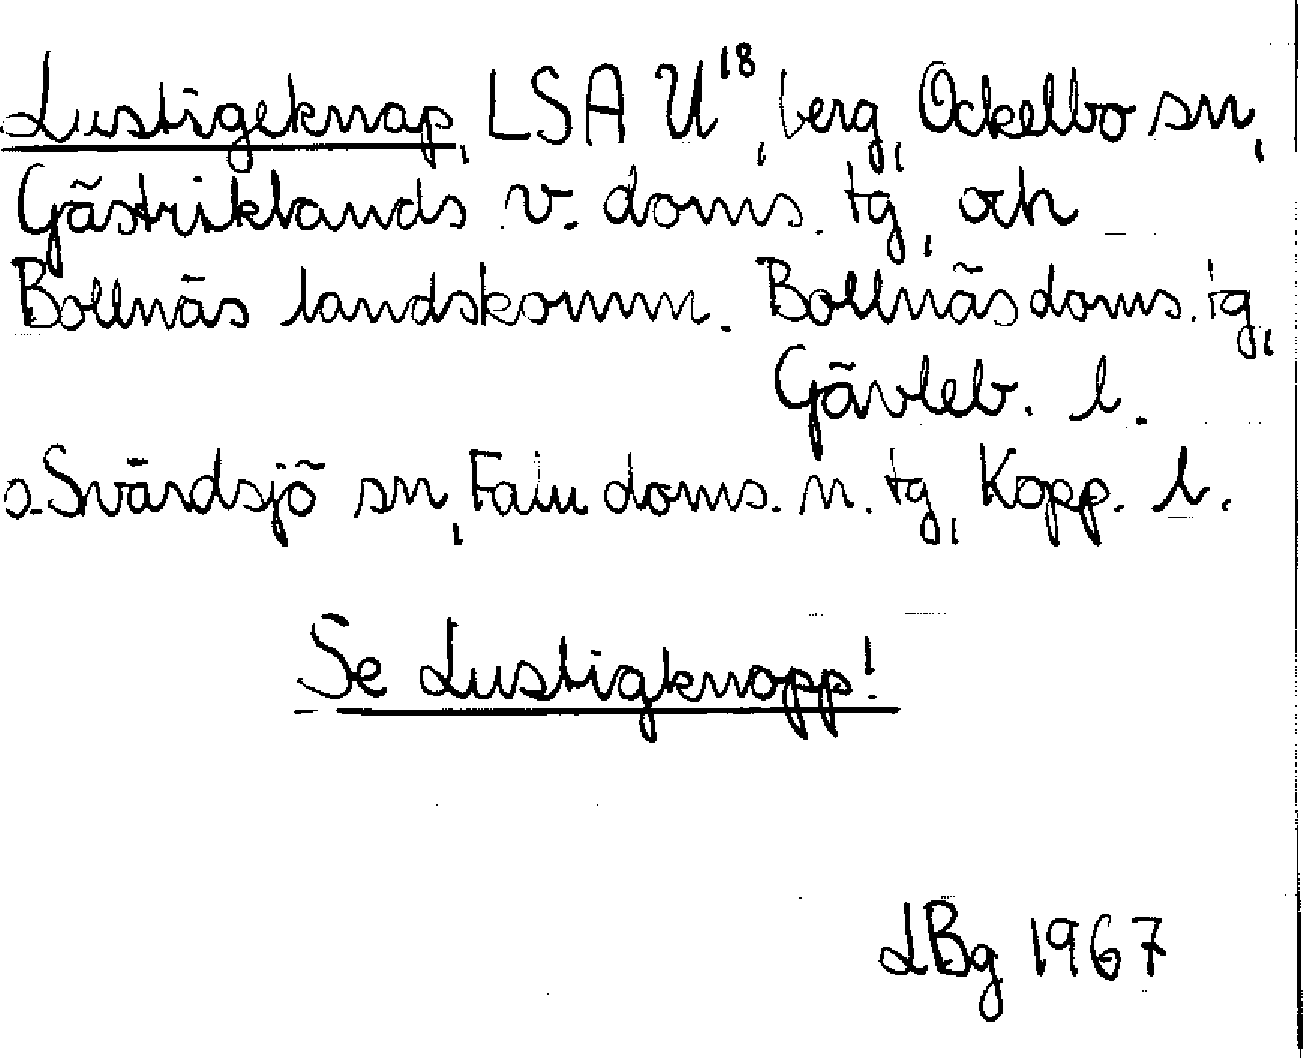 Lustigeknap, LSA U18, berg, Ockelbo sn,
Gästriklands v. doms. tg, och
Bollnäs landskomm. Bollnäs doms. tg,
Gävleb. l.
o. Svärdsjö sn, Falu doms. n. tg, Kopp. l.
Se Lustigknopp!
LBg 1967